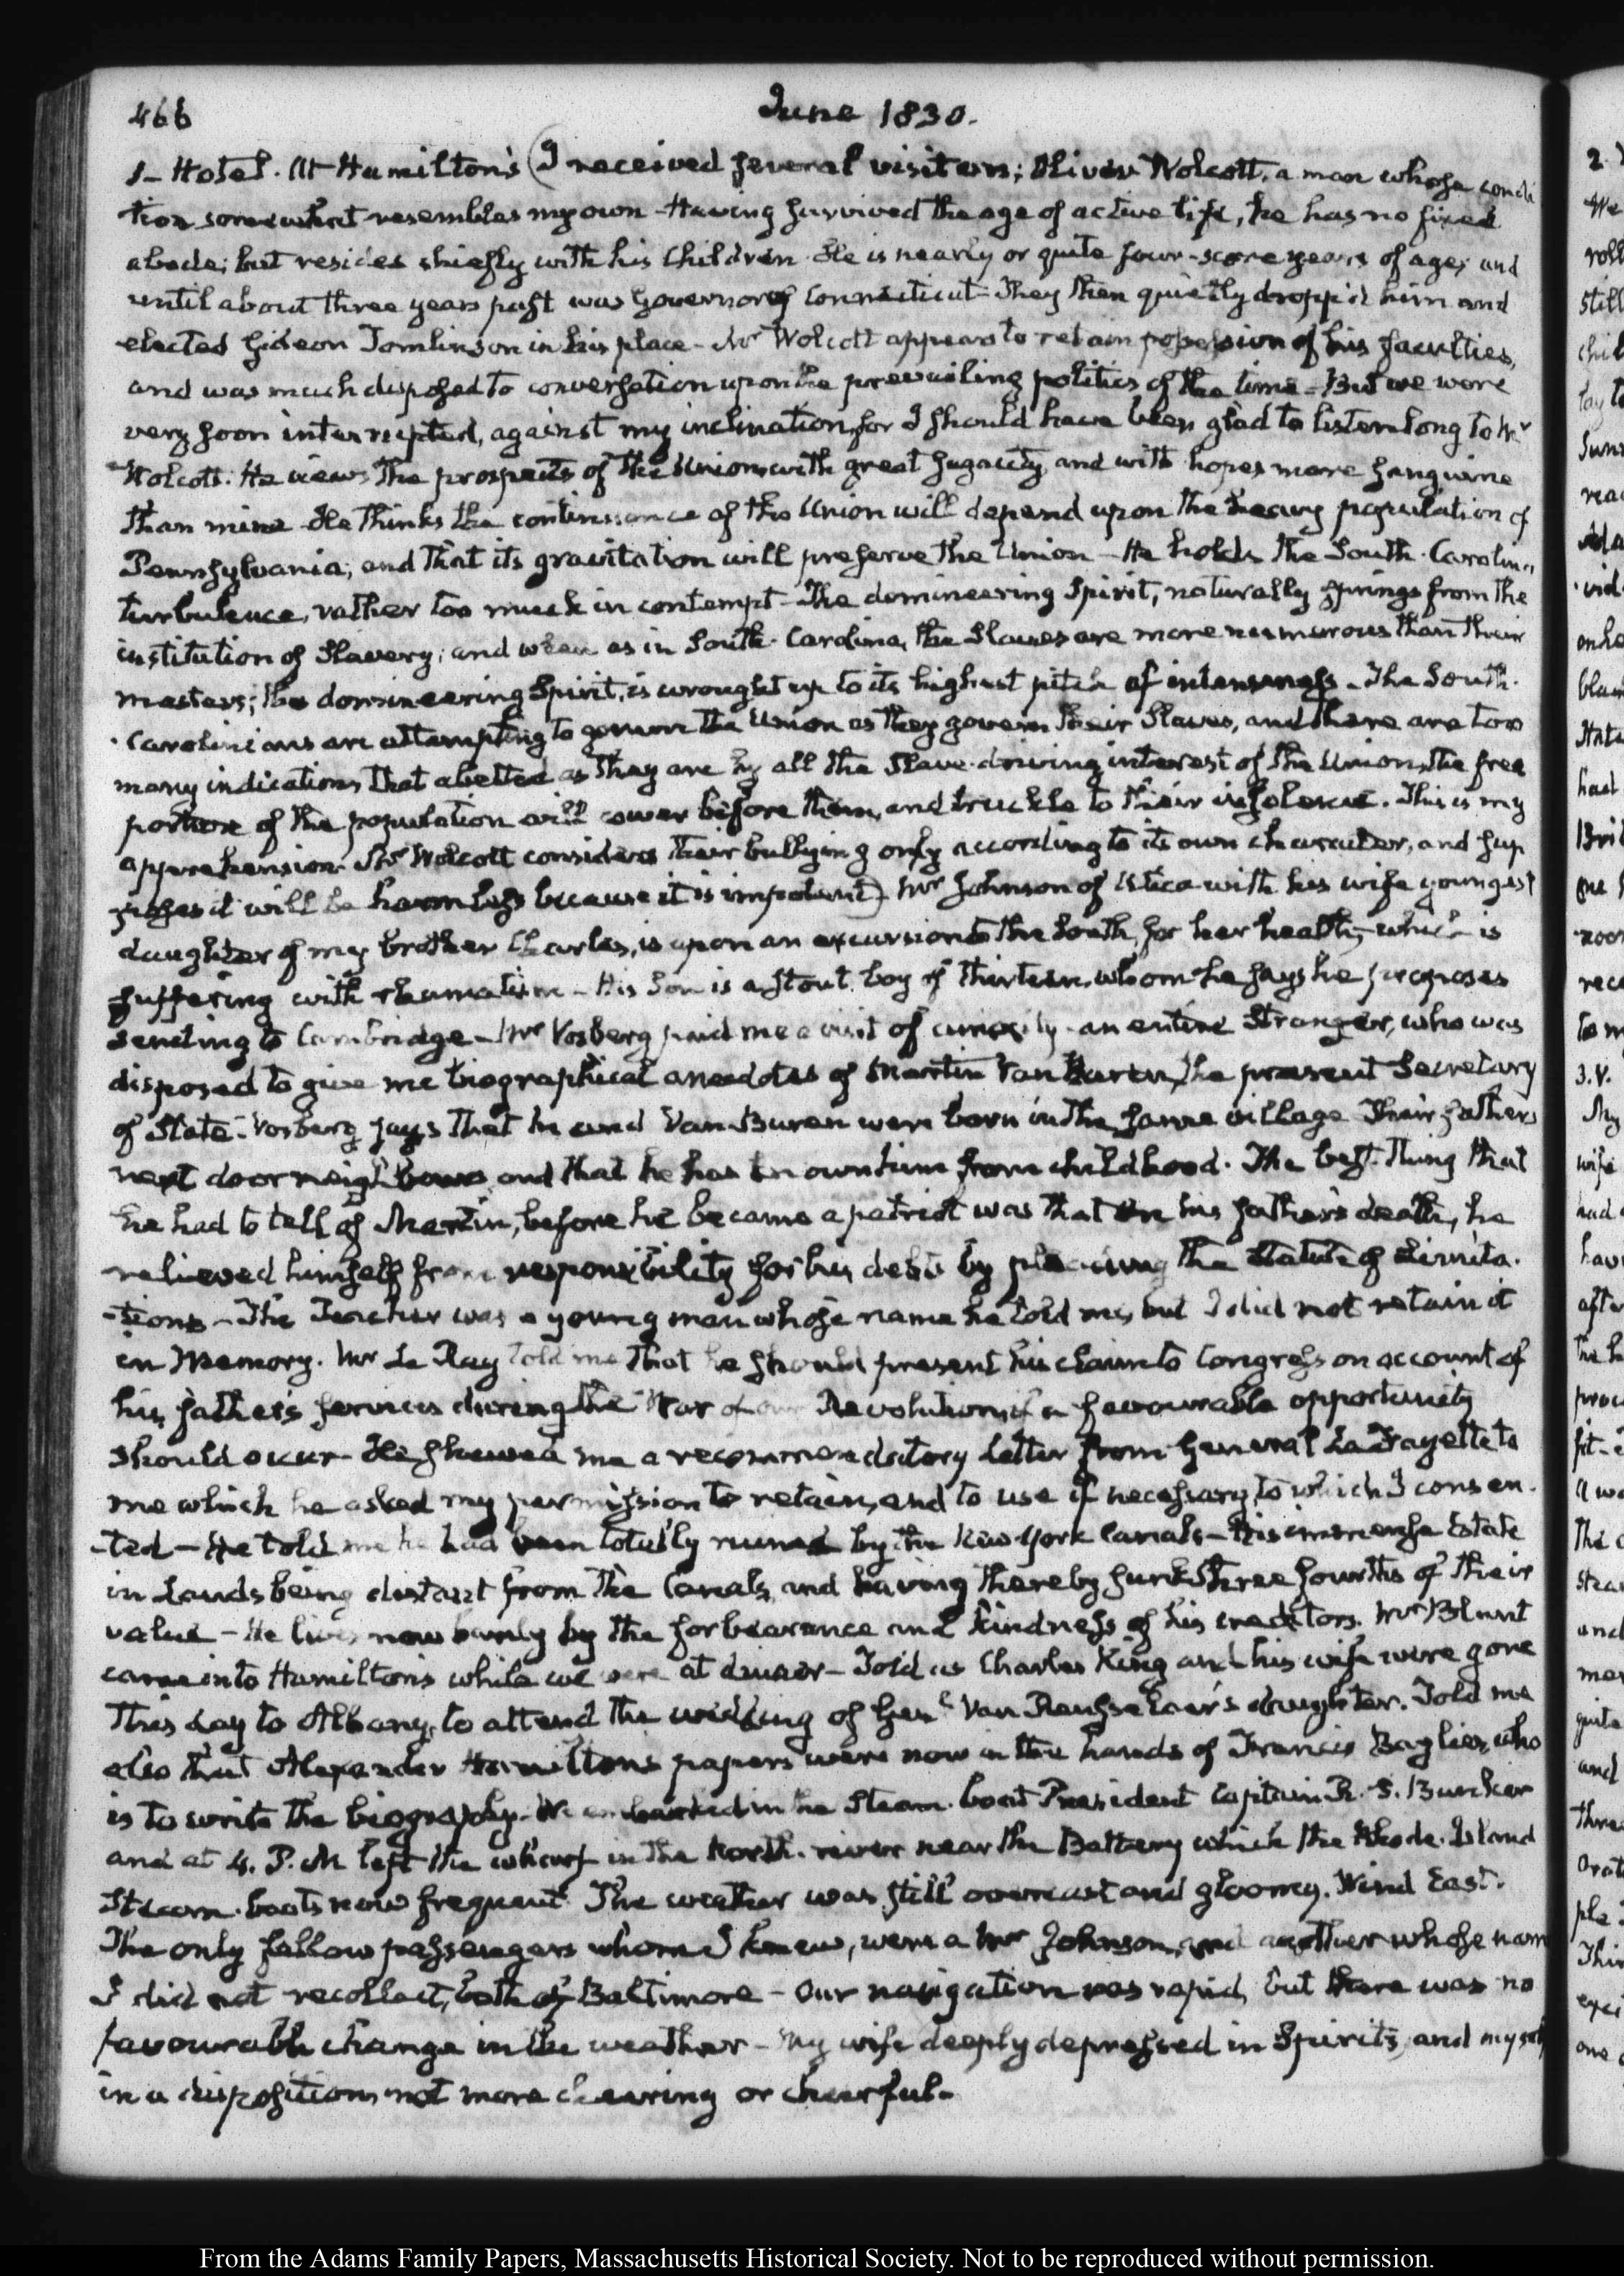 466
June 1830.
1- Hotel. At Hamilton's (I received several visitors; Oliver Wolcott, a man whose condi
tion somewhat resembles my own - Having survived the age of active life, he has no fixed
abode; but resides chiefly with his Children. He is nearly or quite four-score years of age; and
until about three years past was Governor of Connecticut - They then quietly dropp'd him and
elected Gideon Tomlinson in his place - Mr Wolcott appears to retain possession of his faculties,
and was much disposed to conversation upon the prevailing politics of the time - But we were
very soon interrupted, against my inclination, for I should have been glad to listen long to Mr
Wolcott. He views the prospects of the Union with great sagacity, and with hopes more sanguine
than mine - He thinks the continuance of the Union will depend upon the heavy population of
Pennsylvania; and that its gravitation will preserve the Union - He holds the South-Carolina
turbulence, rather too much in contempt - The domineering Spirit, naturally springs from the
institution of Slavery; and when as in South-Carolina, the Slaves are more numerous than their
masters; the domineering Spirit, is wrought up to its highest pitch of intenseness - The South-
Carolinians are attempting to govern the Union as they govern their Slaves, and there are too
many indications that abetted as they are by all the Slave-driving interest of the Union, the free
portion of the population will cower before them, and truckle to their insolence. This is my
apprehension. Mr Wolcott considers their bullying only according to its own character, and sup
poses it will be harmless because it is impotent) Mr Johnson of Utica with his wife youngest
daughter of my brother Charles, is upon an excursion to the South, for her health, which is
suffering with rheumatism - His Son is a stout boy of thirteen, whom he says he proposes
sending to Cambridge - Mr Vosberg paid me a visit of curiosity - an entire Stranger, who was
disposed to give me biographical anecdotes of Martin Van Buren, the present Secretary
of State - Vosberg says that he and Van Buren were born in the same village. Their fathers
next door neighbours, and that he has known him from childhood. The best thing that
he had to tell of Martin, before he became a patriot was that on his father's death, he
relieved himself from responsibility for his debts by pleading the Statute of Limita-
-tions - The Teacher was a young man whose name he told me, but I did not retain it
in Memory. Mr Le Ray told me that he should present his claim to Congress on account of
his father's services during the War of our Revolution, if a favourable opportunity
should occur - He shewed me a recommendatory Letter from General La Fayette to
me which he asked my permission to retain, and to use if necessary, to which I consen-
-ted - He told me he had been totally ruined by the New York Canals - His immense Estate
in Lands being distant from the Canals, and having thereby sunk three fourths of their
value - He lives now barely by the forbearance and kindness of his creditors. Mr Blunt
came into Hamilton's while we were at dinner - Told us Charles King and his wife were gone
this day to Albany, to attend the wedding of Genl Van Rensselaer's daughter. Told me
also that Alexander Hamilton's papers were now in the hands of Francis Baylies, who
is to write the biography. We embarked in the Steam-boat President Captain R. S. Bunker
and at 4. P. M. left the wharf in the North-river near the Battery which the Rhode-Island
Steam-boats now frequent. The weather was still overcast and gloomy. Wind East.
The only fellow passengers whom I knew, were a Mr Johnson, and another whose nam
I did not recollect, both of Baltimore - Our navigation was rapid, but there was no
favourable change in the weather - My wife deeply depressed in Spirits, and myself
in a disposition not more cheering or cheerful -
From the Adams Family Papers, Massachusetts Historical Society. Not to be reproduced without permission.